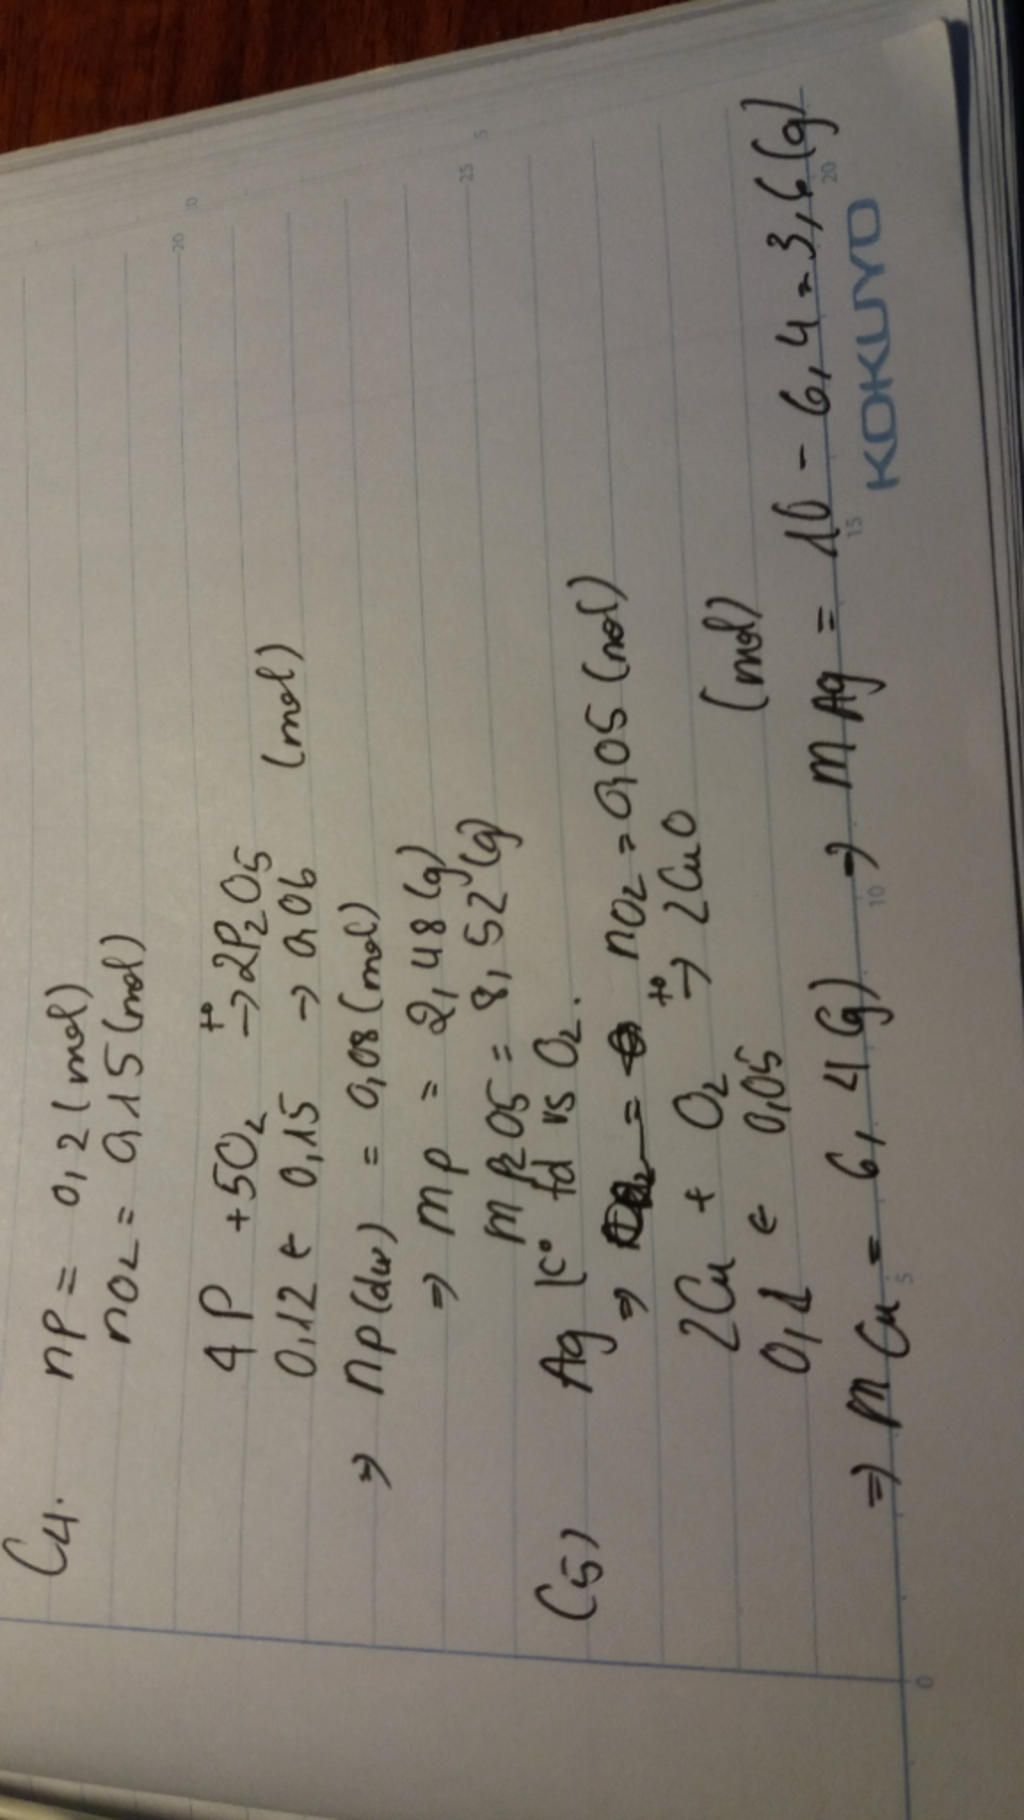 C4. nP = 0,2 (mol)
nO2 = 0,15 (mol)
4P + 5O2 t° → 2P2O5
0,12 ← 0,15 → 0,06 (mol)
⇒ nP(dư) = 0,08 (mol)
⇒ mP = 2,48 (g)
mP2O5 = 8,52 (g)
C5) Ag k° td vs O2.
⇒ nO2 = 0,05 (mol)
2Cu + O2 t° → 2CuO
0,1 ← 0,05 (mol)
⇒ mCu = 6,4 (g) ⇒ mAg = 10 - 6,4 = 3,6 (g)
KOKUYO